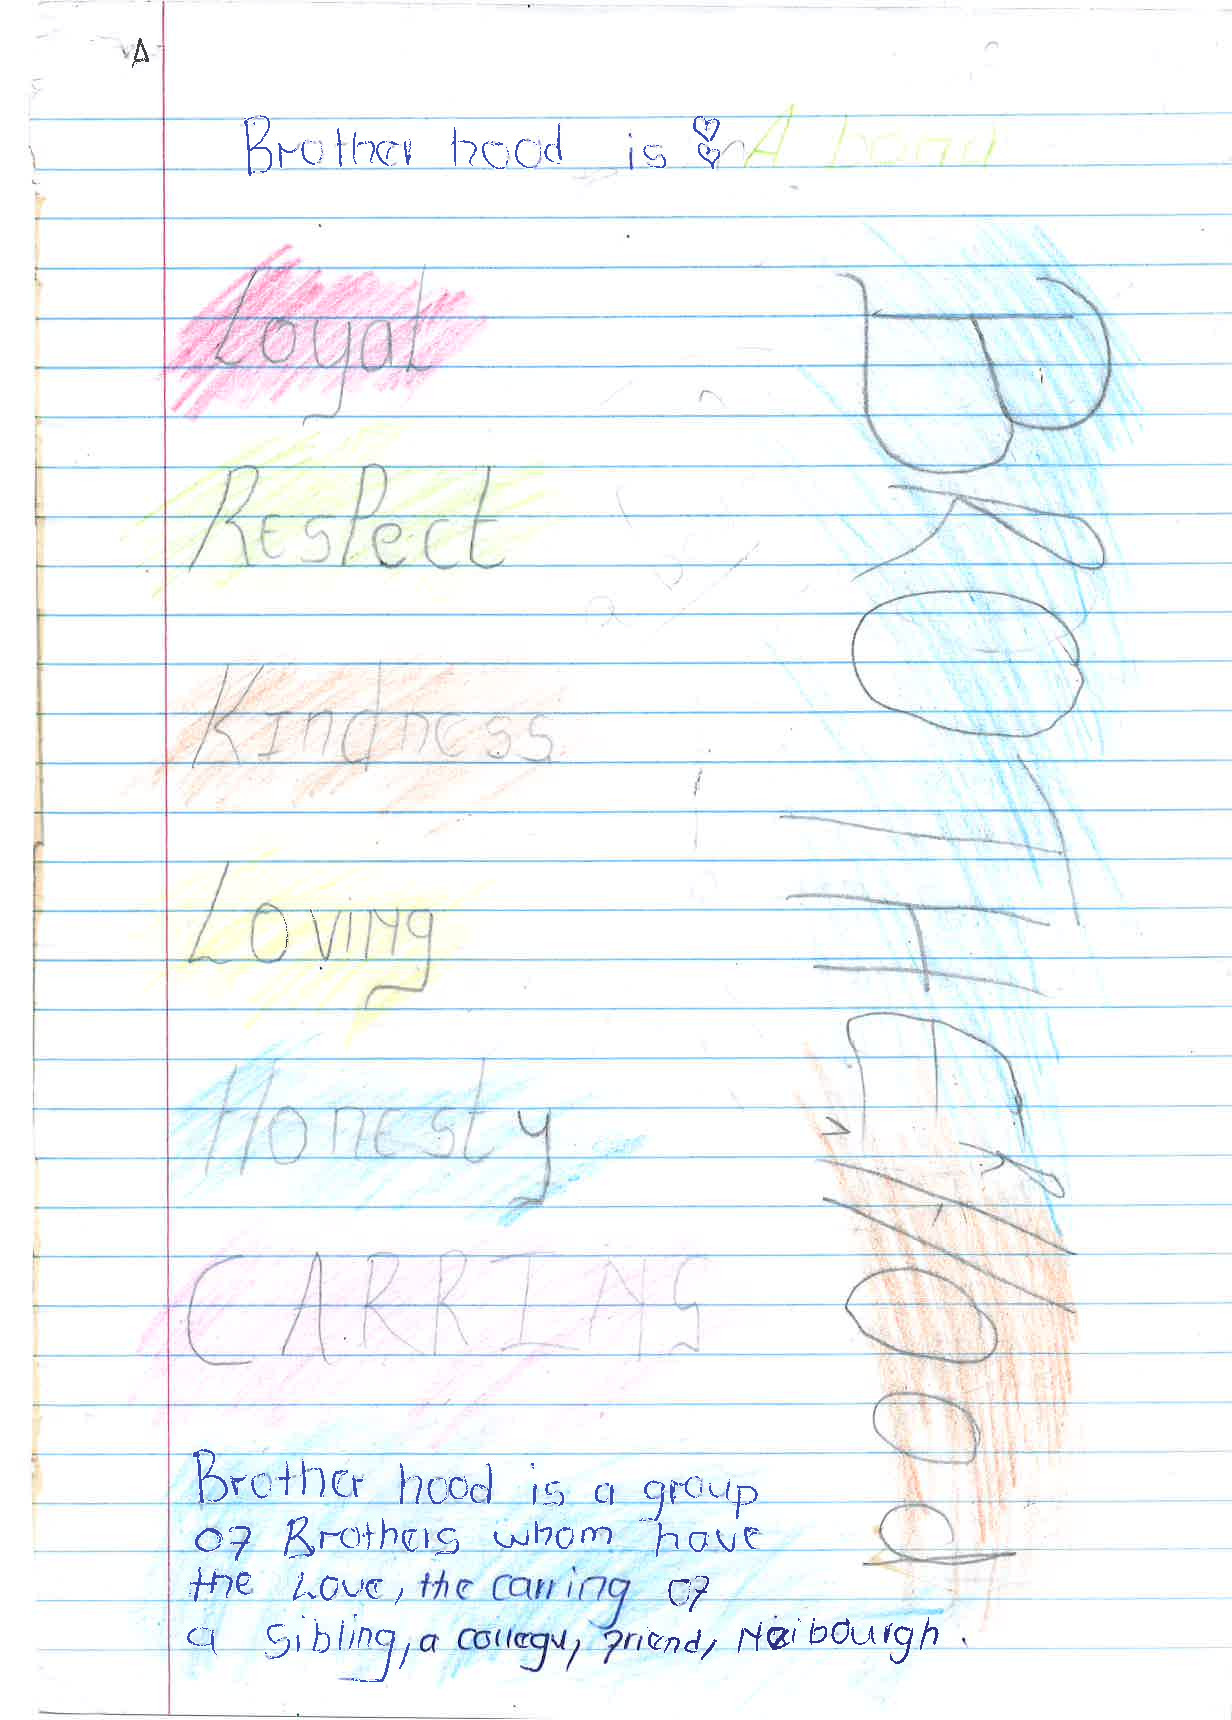 A
Brother hood is A bond
Loyal
Respect
Kindness
Loving
Honesty
CARRING
BROTHER
HOOD
Brother hood is a group
of Brothers whom have
the Love, the carring of
a sibling, a collegu, friend, Neibourgh.